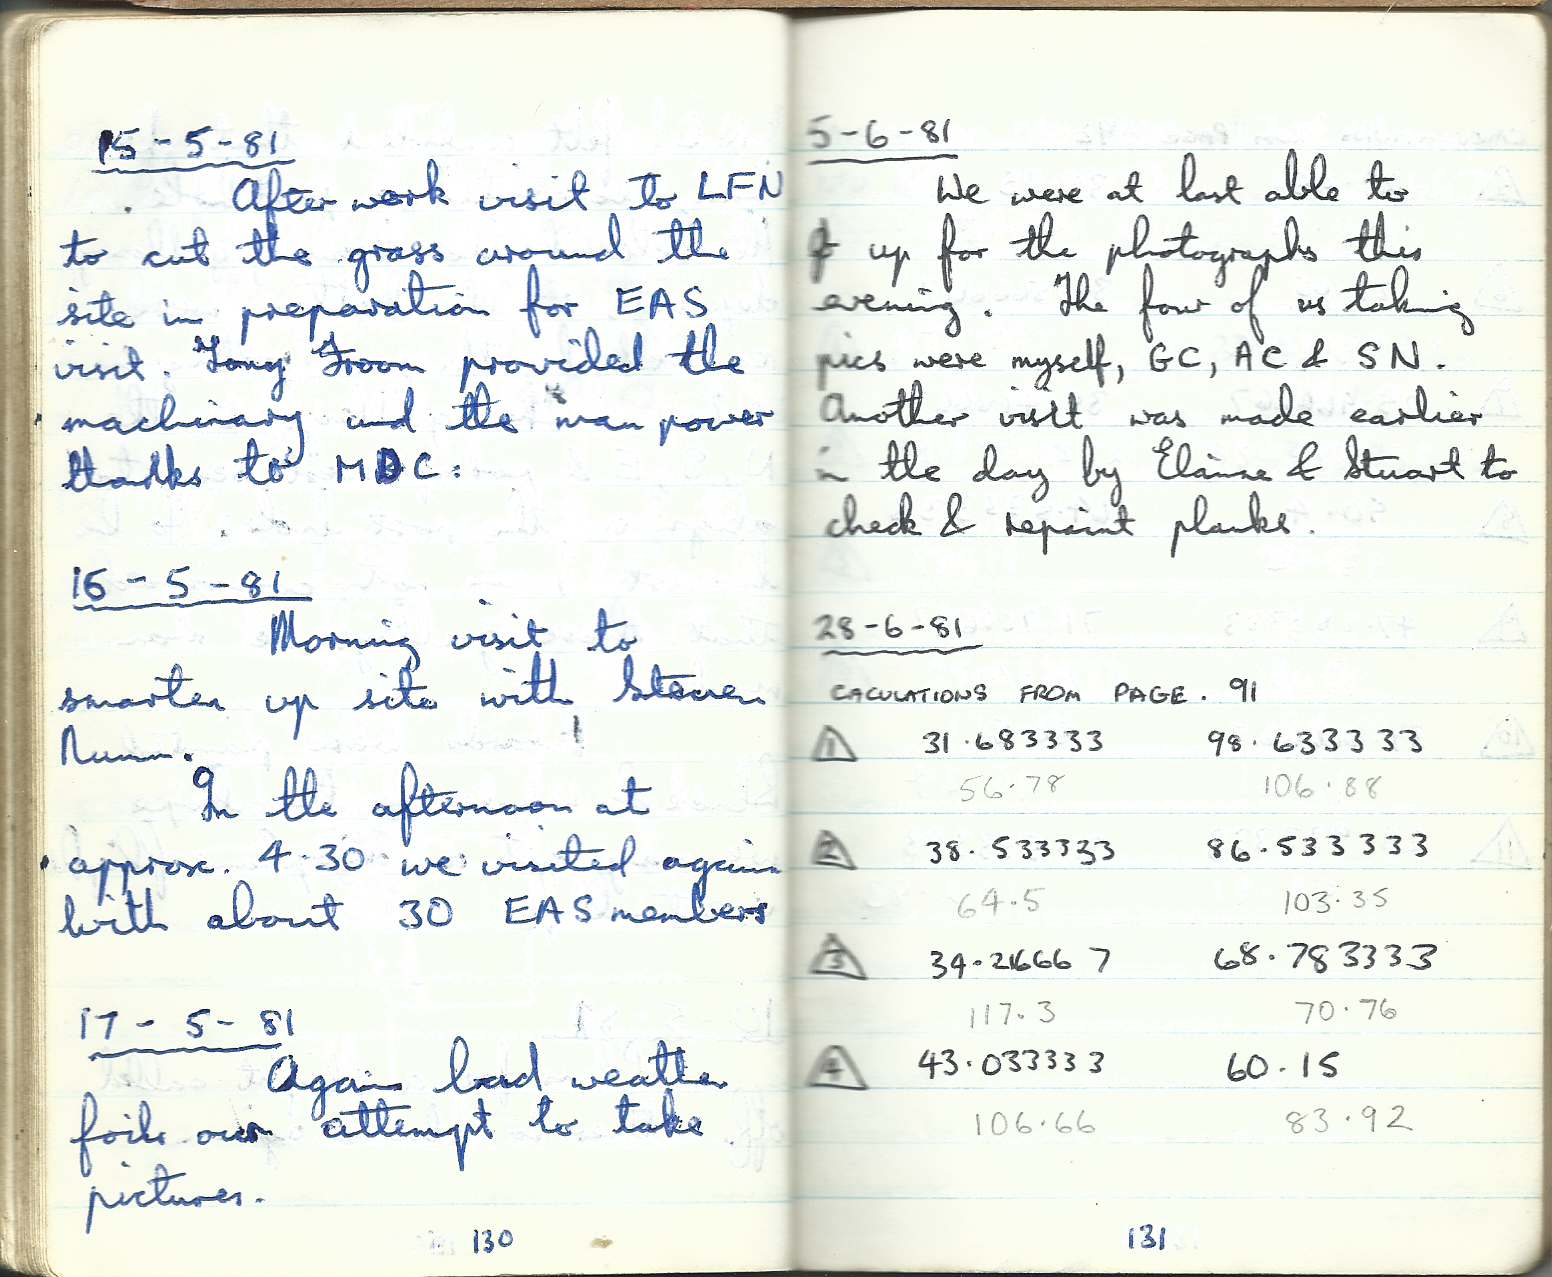 15-5-81
After work visit to LFN
to cut the grass around the
site in preparation for EAS
visit. Tony Froom provided the
machinary and the man power
thanks to MDC:
16-5-81
Morning visit to
smarten up site with Steven
Nunn.
In the afternoon at
approx. 4.30 we visited again
with about 30 EAS members
17-5-81
Again bad weather
foils our attempt to take
pictures.
130
5-6-81
We were at last able to
up for the photographs this
evening. The four of us taking
pics were myself, GC, AC & SN.
Another visit was made earlier
in the day by Elaine & Stuart to
check & repaint planks.
28-6-81
CACULATIONS FROM PAGE. 91
1 31.683333 98.633333
56.78 106.88
2 38.533333 86.533333
64.5 103.35
3 34.216667 68.783333
117.3 70.76
4 43.033333 60.15
106.66 83.92
131